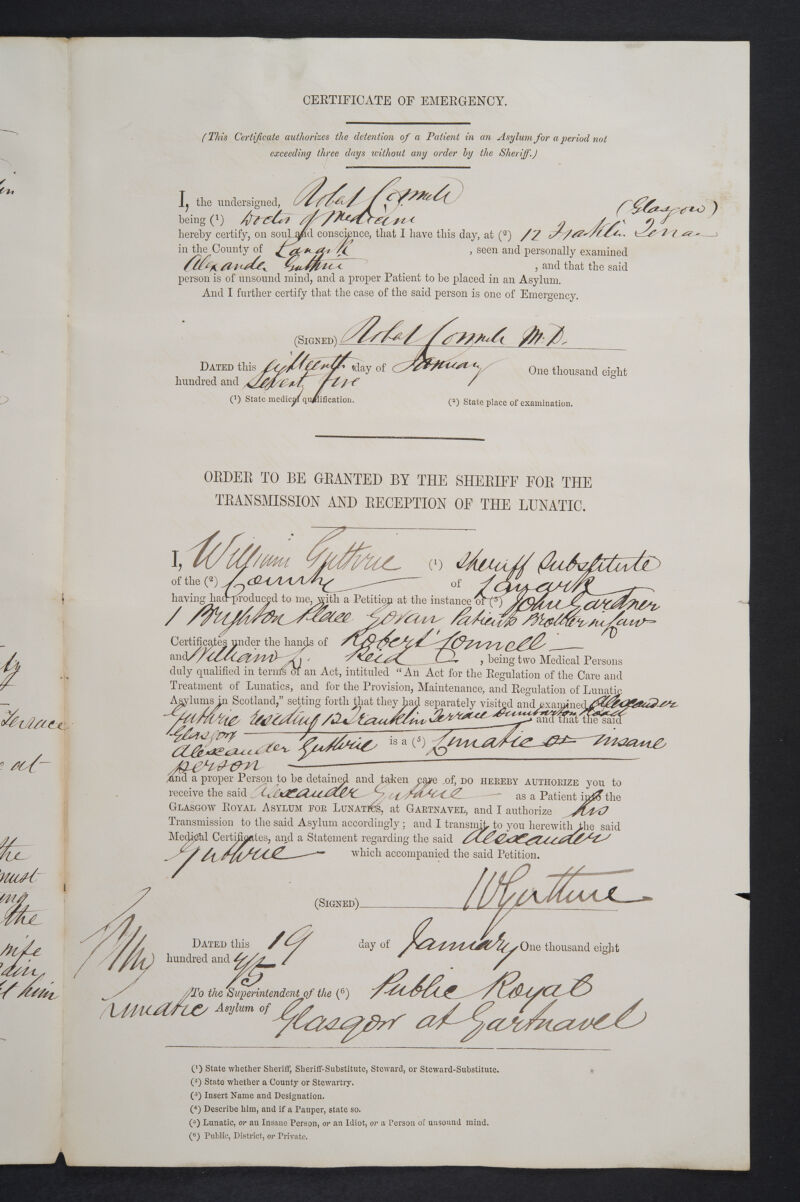 CERTIFICATE OF EMERGENCY.
(This Certificate authorizes the detention of a Patient in an Asylum for a period not
exceeding three days without any order by the Sheriff.)
I, the undersigned, Robert Connell
being (1) Doctor of Medicine (Glasgow)
hereby certify, on soul and conscience, that I have this day, at (2) 12 Franklin Terrace
in the County of Lanark , seen and personally examined
Alexander Guthrie , and that the said
person is of unsound mind, and a proper Patient to be placed in an Asylum.
And I further certify that the case of the said person is one of Emergency.
(SIGNED) Robert Connell M.D.
DATED this eighteenth day of January One thousand eight
hundred and Seventy five
(1) State medical qualification. (2) State place of examination.
ORDER TO BE GRANTED BY THE SHERIFF FOR THE
TRANSMISSION AND RECEPTION OF THE LUNATIC.
I, William Guthrie (1) Sheriff Substitute
of the (2) County of Lanark
having had produced to me, with a Petition at the instance of (3) John Gardner
1 Brighton Place Govan Patients Brother in law
Certificates under the hands of Robert Connell
and William L. Reid , being two Medical Persons
duly qualified in terms of an Act, intituled "An Act for the Regulation of the Care and
Treatment of Lunatics, and for the Provision, Maintenance, and Regulation of Lunatic
Asylums in Scotland," setting forth that they had separately visited and examined Alexander
Guthrie residing 12 Franklin Terrace Dumbarton Road and that the said
Glasgow
Alexander Guthrie is a (5) Lunatic or insane
person
and a proper Person to be detained and taken care of, DO HEREBY AUTHORIZE you to
receive the said Alexander Guthrie as a Patient into the
GLASGOW ROYAL ASYLUM FOR LUNATICS, at GARTNAVEL, and I authorize his
Transmission to the said Asylum accordingly; and I transmit to you herewith the said
Medical Certificates, and a Statement regarding the said Alexander
Guthrie which accompanied the said Petition.
(SIGNED) W Guthrie
DATED this 19 day of January One thousand eight
hundred and 75
To the Superintendent of the (6) Public Royal
Lunatic Asylum of Glasgow at Gartnavel
(1) State whether Sheriff, Sheriff-Substitute, Steward, or Steward-Substitute.
(2) State whether a County or Stewartry.
(3) Insert Name and Designation.
(4) Describe him, and if a Pauper, state so.
(5) Lunatic, or an Insane Person, or an Idiot, or a Person of unsound mind.
(6) Public, District, or Private.
Terrace
at
the
must
the
wife
him